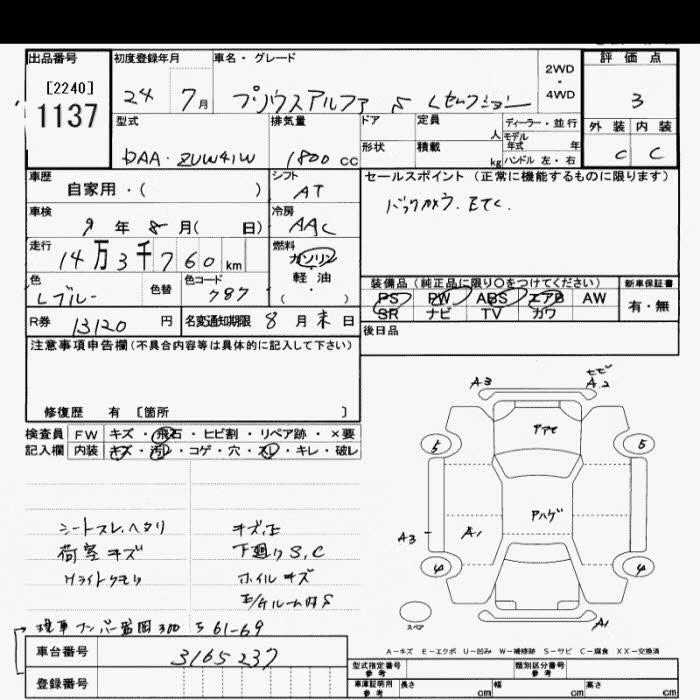 出品番号 初度登録年月 車名・グレード 評価点
[2240] 2WD・4WD
1137 24 7月 プリウスアルファ S Lセレクション 3
型式 排気量 ドア 定員 人 ディーラー・並行 外装 内装
形状 積載 kg モデル年式 年 ハンドル 左・右
DAA-ZVW41W 1800 cc C C
車歴 シフト セールスポイント(正常に機能するものに限ります)
自家用・( ) AT
バックカメラ. ETC.
車検 冷房
9年 8月( 日) AAC
走行 燃料
14万3千760km ガソリン
軽油
・
( ) 
装備品(純正品に限り○をつけてください) 新車保証書
色 色替 色コード
Lブルー 787
PS PW ABS エアB AW 有・無
SR ナビ TV カワ
R券 13120円 名変通知期限 8月末日
後日品
注意事項申告欄(不具合内容等は具体的に記入して下さい)
修復歴 有 〔箇所 〕
検査員 FW キズ・飛石・ヒビ割・リペア跡・×要
記入欄 内装 キズ・汚レ・コゲ・穴・スレ・キレ・破レ
A3 A2
アアセ
5 5
アハゲ
A3 A1
4 4
スペア A1
シートスレ.ヘタリ キズ、凹
荷室キズ 下廻りS,C
Hライトクモリ ホイルキズ
E/Gルーム内S
現車ナンバー盛岡300 ち61-69
A-キズ E-エクボ U-凹み W-補修跡 S-サビ C-腐食 XX-交換済
車台番号 3165237
登録番号
型式指定番号 参考 類別区分番号 参考
車庫証明用 参考 長さ cm 幅 cm 高さ cm